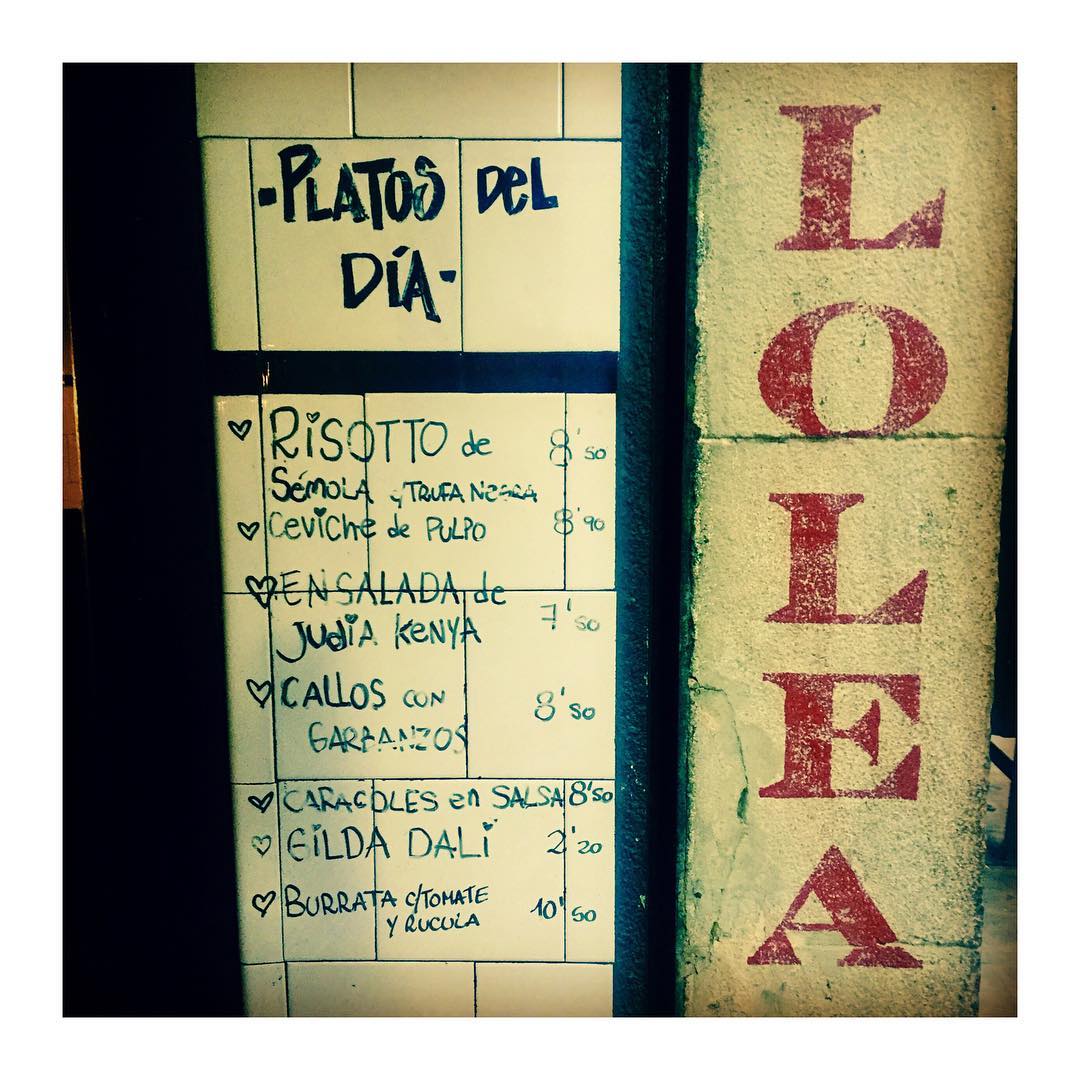 -PLATOS DEL
DÍA-
RISOTTO de 8'50
SÉMOLA y TRUFA NEGRA
CEVICHE de PULPO 8'90
ENSALADA de
JUDIA KENYA 7'50
CALLOS CON 8'50
GARBANZOS
CARACOLES en SALSA 8'50
GILDA DALI 2'20
BURRATA C/TOMATE
Y RUCULA 10'50
LOLEA